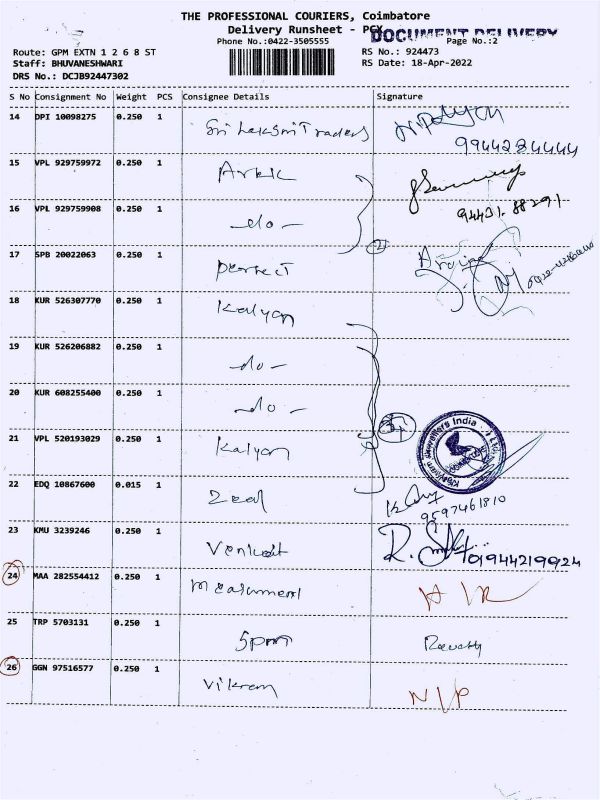 THE PROFESSIONAL COURIERS, Coimbatore
Delivery Runsheet - PCX
DOCUMENT DELIVERY
Phone No.:0422-3505555
Page No.:2
Route: GPM EXTN 1 2 6 8 ST
RS No.: 924473
Staff: BHUVANESHWARI
RS Date: 18-Apr-2022
DRS No.: DCJB92447302
S No Consignment No Weight PCS Consignee Details Signature
14 DPI 10098275 0.250 1 Sri Laksmi Traders
9944284444
15 VPL 929759972 0.250 1
94431.88291
16 VPL 929759908 0.250 1 -do-
2
17 SPB 20022063 0.250 1 perfect
18 KUR 526307770 0.250 1 Kalyan
19 KUR 526206882 0.250 1 -do-
20 KUR 608255400 0.250 1 -do-
21 VPL 520193029 0.250 1 Kalyan
Kalyan Jewellers India
COIMBATORE
22 EDQ 10867600 0.015 1 Zeal
9597461810
23 KMU 3239246 0.250 1 Venkat
01944219924
24 MAA 282554412 0.250 1 Measurment
25 TRP 5703131 0.250 1 5pm Revathy
26 GGN 97516577 0.250 1 Vikram N/P